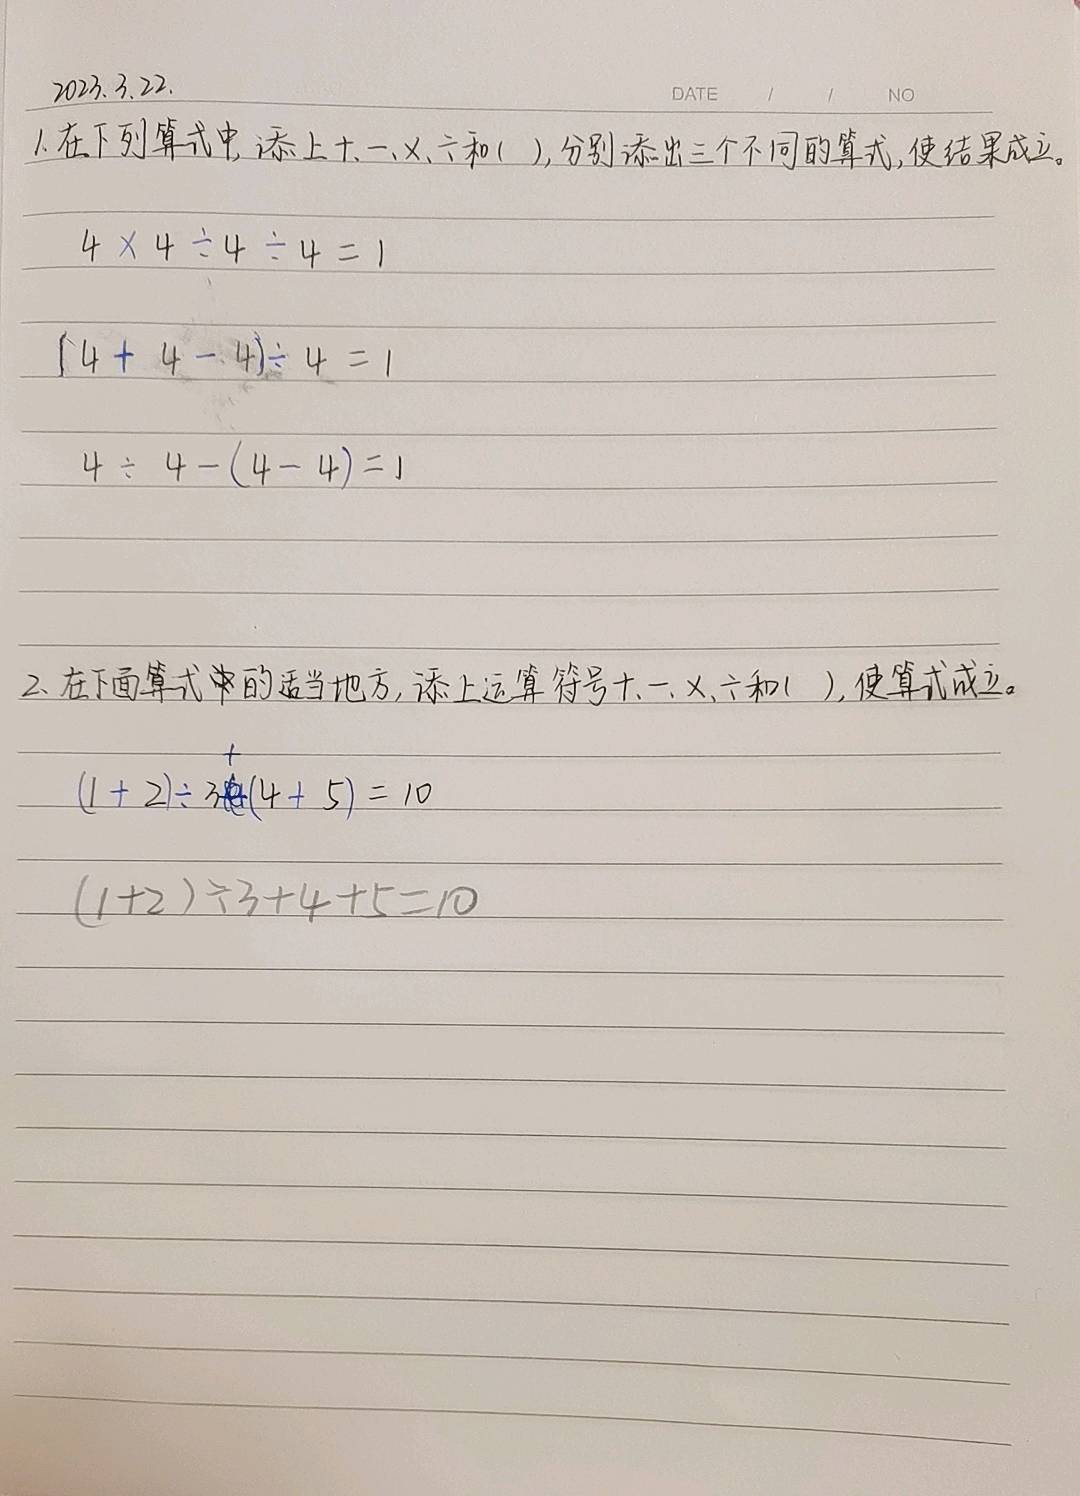 2023.3.22.
DATE / / NO
1.在下列算式中,添上+、-、×、÷和( ),分别添出三个不同的算式,使结果成立。
4×4÷4÷4=1
(4+4-4)÷4=1
4÷4-(4-4)=1
2.在下面算式中的适当地方,添上运算符号+、-、×、÷和( ),使算式成立。
(1+2)÷3+(4+5)=10
(1+2)÷3+4+5=10